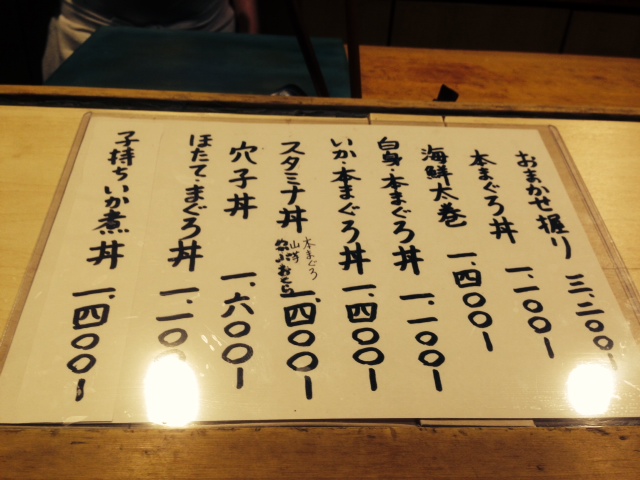 おまかせ握り 三、二〇〇-
本まぐろ丼 一、一〇〇-
海鮮太巻 一、四〇〇-
白身・本まぐろ丼 一、一〇〇-
いか・本まぐろ丼 一、四〇〇-
スタミナ丼 一、四〇〇-
本まぐろ
山芋
おくら
穴子丼 一、六〇〇-
ほたて・まぐろ丼 一、一〇〇-
子持ちいか煮丼 一、四〇〇-